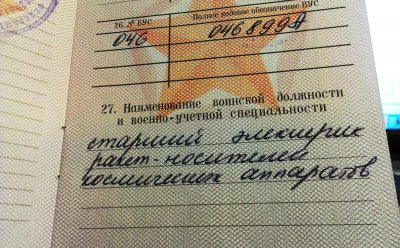 26. № ВУС
Полное кодовое обозначение ВУС
046
046899А
27. Наименование воинской должности
и военно-учетной специальности
старший электрик
ракет-носителей
космических аппаратов